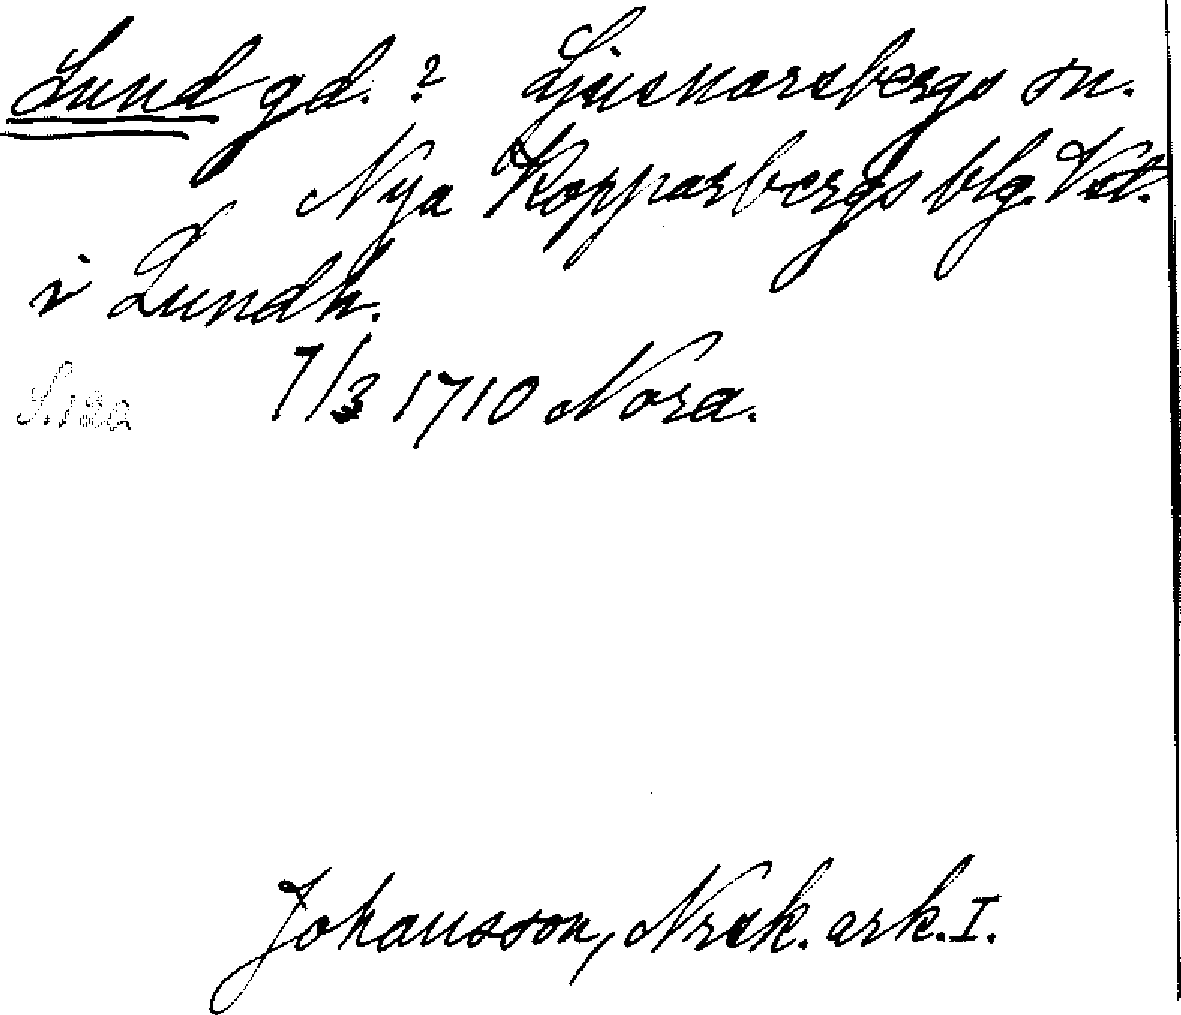 Lund gd. ? Ljusnarsbergs sn.
Nya Kopparbergs blg. Vstl.
i Lundh.
7/3 1710 Nora.
Johansson, Nrak. ark. I.